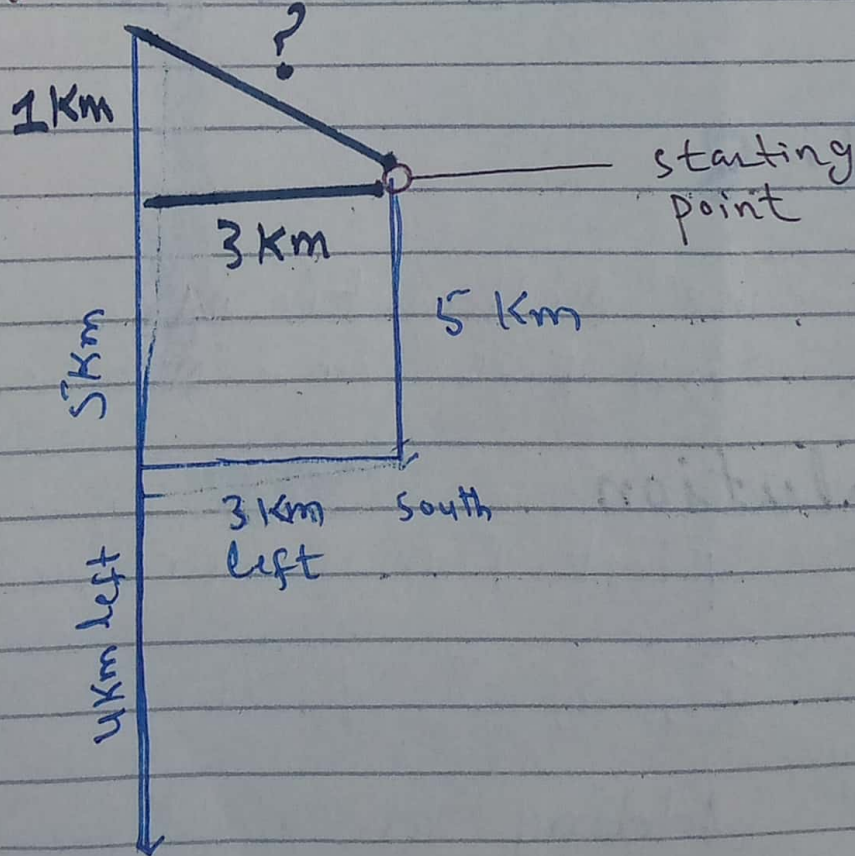 ?
1Km
starting
point
3 Km
5 Km
5Km
3 Km
left
south
4Km left